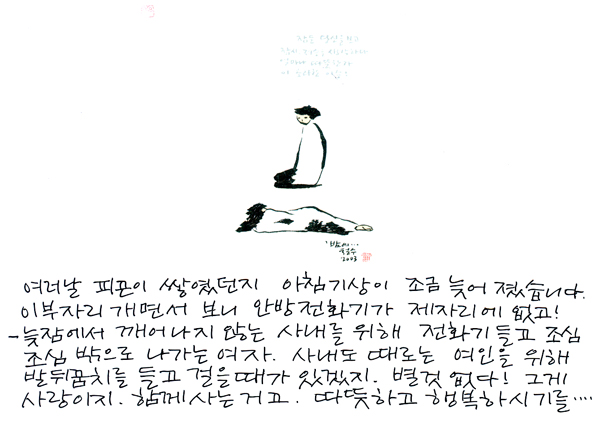 '밤에...
철수
2003
여러날 피곤이 쌓였던지 아침기상이 조금 늦어 졌습니다.
이부자리 개면서 보니 안방전화기가 제자리에 없고!
- 늦잠에서 깨어나지 않는 사내를 위해 전화기 들고 조심
조심 밖으로 나가는 여자. 사내도 때로는 여인을 위해
발뒤꿈치를 들고 걸을때가 있겠지. 별것 없다! 그게
사랑이지. 함께 사는거고. 따뜻하고 행복하시기를····